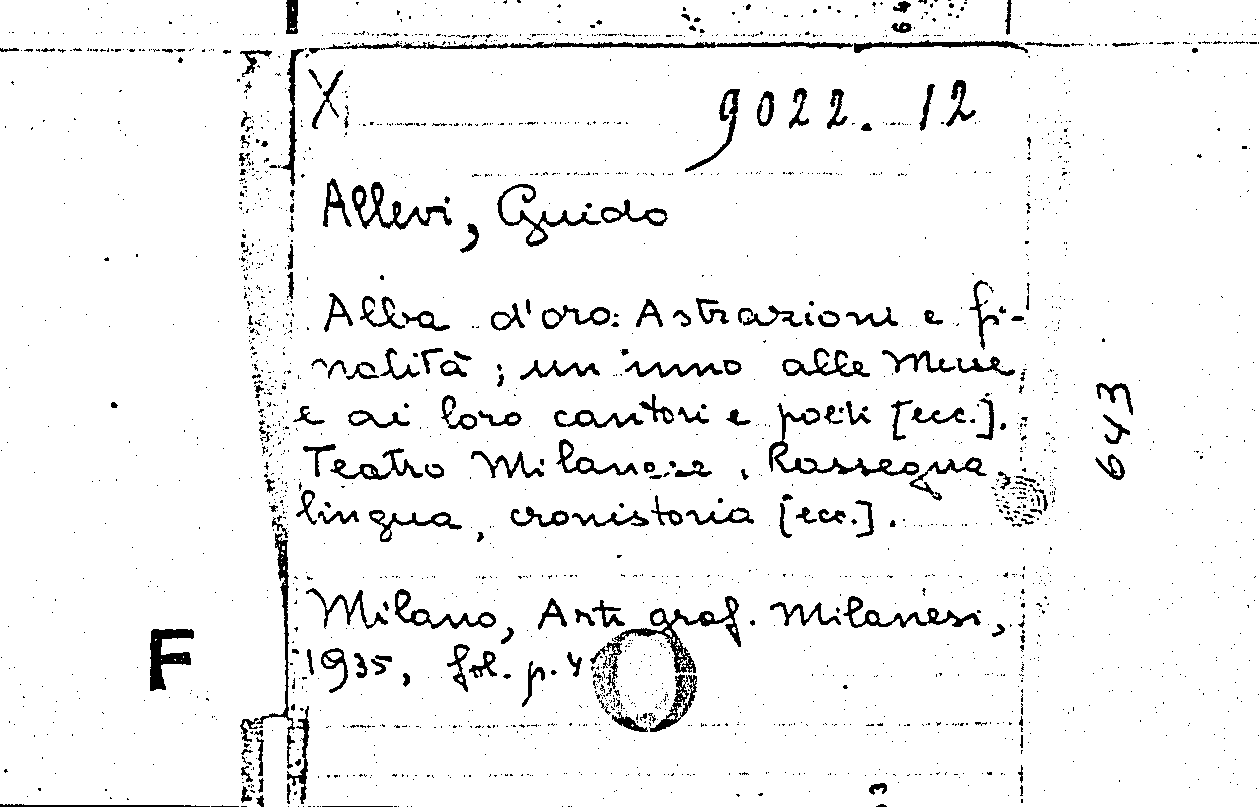 X
9022. 12
Allevi, Guido
Alba d'oro: Astrazioni e fi-
nalità ; un inno alle Muse
e ai loro cantori e poeti [ecc.].
Teatro Milanese. Rassegna,
lingua, cronistoria [ecc.].
Milano, Arti graf. Milanesi,
1935, fol. p. 4
643
F